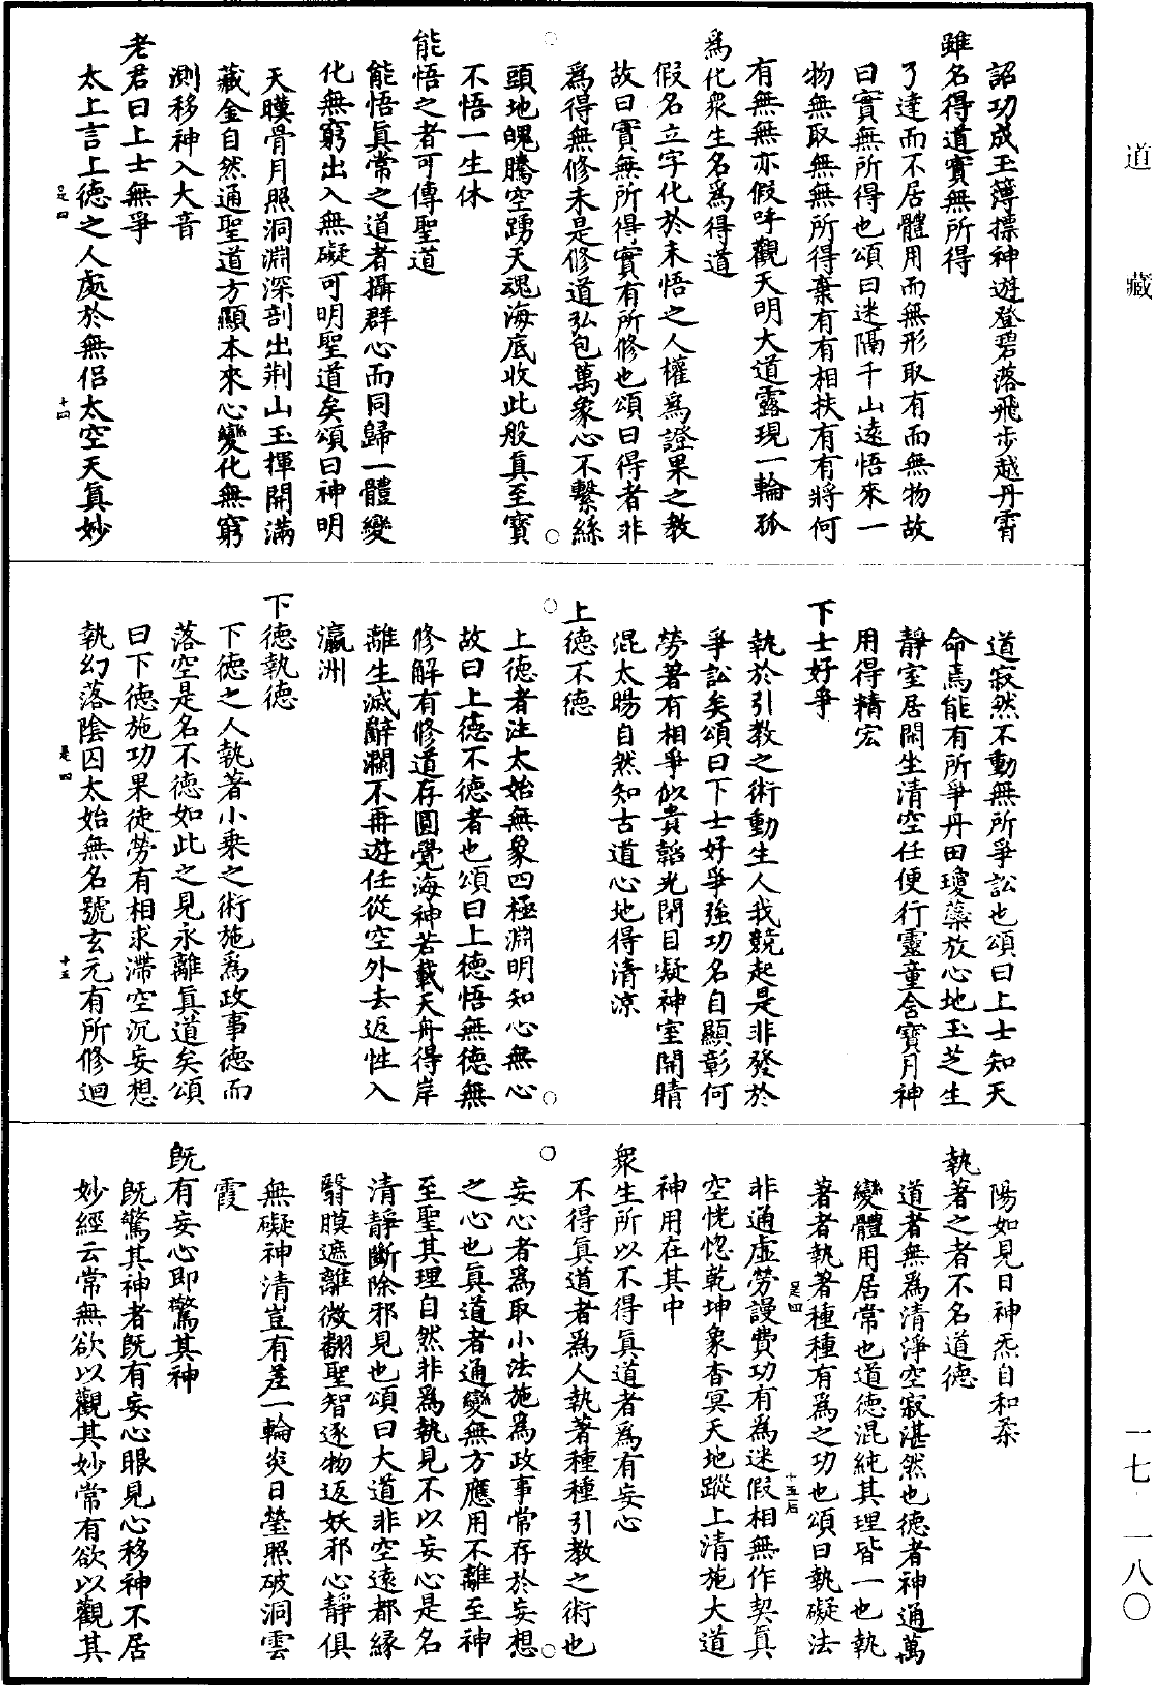 道藏
一七 一八〇
詔功成玉簿摽神遊登碧落飛步越丹霄
雖名得道實無所得
了達而不居體用而無形取有而無物故
曰實無所得也頌曰迷隔千山遠悟來一
物無取無無所得棄有有相扶有有將何
有無無亦假呼觀天明大道露現一輪孤
為化衆生名為得道
假名立字化於未悟之人權為證果之教
故曰實無所得實有所修也頌曰得者非
為得無修未是修道弘包萬象心不繫絲
頭地魄騰空踴天魂海底收此般真至寶
不悟一生休
能悟之者可傳聖道
能悟真常之道者攝群心而同歸一體變
化無窮出入無礙可明聖道矣頌曰神明
天瞙骨月照洞淵深剖出荆山玉揮開滿
藏金自然通聖道方顯本來心變化無窮
測移神入大音
老君曰上士無爭
太上言上德之人處於無侣太空天真妙
是四 十四
道寂然不動無所爭訟也頌曰上士知天
命焉能有所爭丹田瓊蘂放心地玉芝生
靜室居閑坐清空任便行靈童含寶月神
用得精宏
下士好爭
執於引教之術動生人我競起是非發於
爭訟矣頌曰下士好爭強功名自顯彰何
勞著有相爭似貴韜光閉目凝神室開睛
混太暘自然知古道心地得清凉
上德不德
上德者注太始無象四極淵明知心無心
故曰上德不德者也頌曰上德悟無德無
修解有修道存圓覺海神若載天舟得岸
離生滅辭瀾不再遊任從空外去返性入
瀛洲
下德執德
下德之人執著小乘之術施為政事德而
落空是名不德如此之見永離真道矣頌
曰下德施功果徒勞有相求滯空沉妄想
執幻落陰囚太始無名號玄元有所修迴
是四 十五
陽如見日神炁自和柔
執著之者不名道德
道者無為清淨空寂湛然也德者神通萬
變體用居常也道德混純其理皆一也執
著者執著種種有為之功也頌曰執礙法
是四 十五后
非通虛勞謾費功有為迷假相無作契真
空恍惚乾坤象杳冥天地蹤上清施大道
神用在其中
衆生所以不得真道者為有妄心
不得真道者為人執著種種引教之術也
妄心者為取小法施為政事常存於妄想
之心也真道者通變無方應用不離至神
至聖其理自然非為執見不以妄心是名
清靜斷除邪見也頌曰大道非空遠都緣
翳膜遮離微翻聖智逐物返妖邪心靜俱
無礙神清豈有差一輪炎日瑩照破洞雲
霞
既有妄心即驚其神
既驚其神者既有妄心眼見心移神不居
妙經云常無欲以觀其妙常有欲以觀其